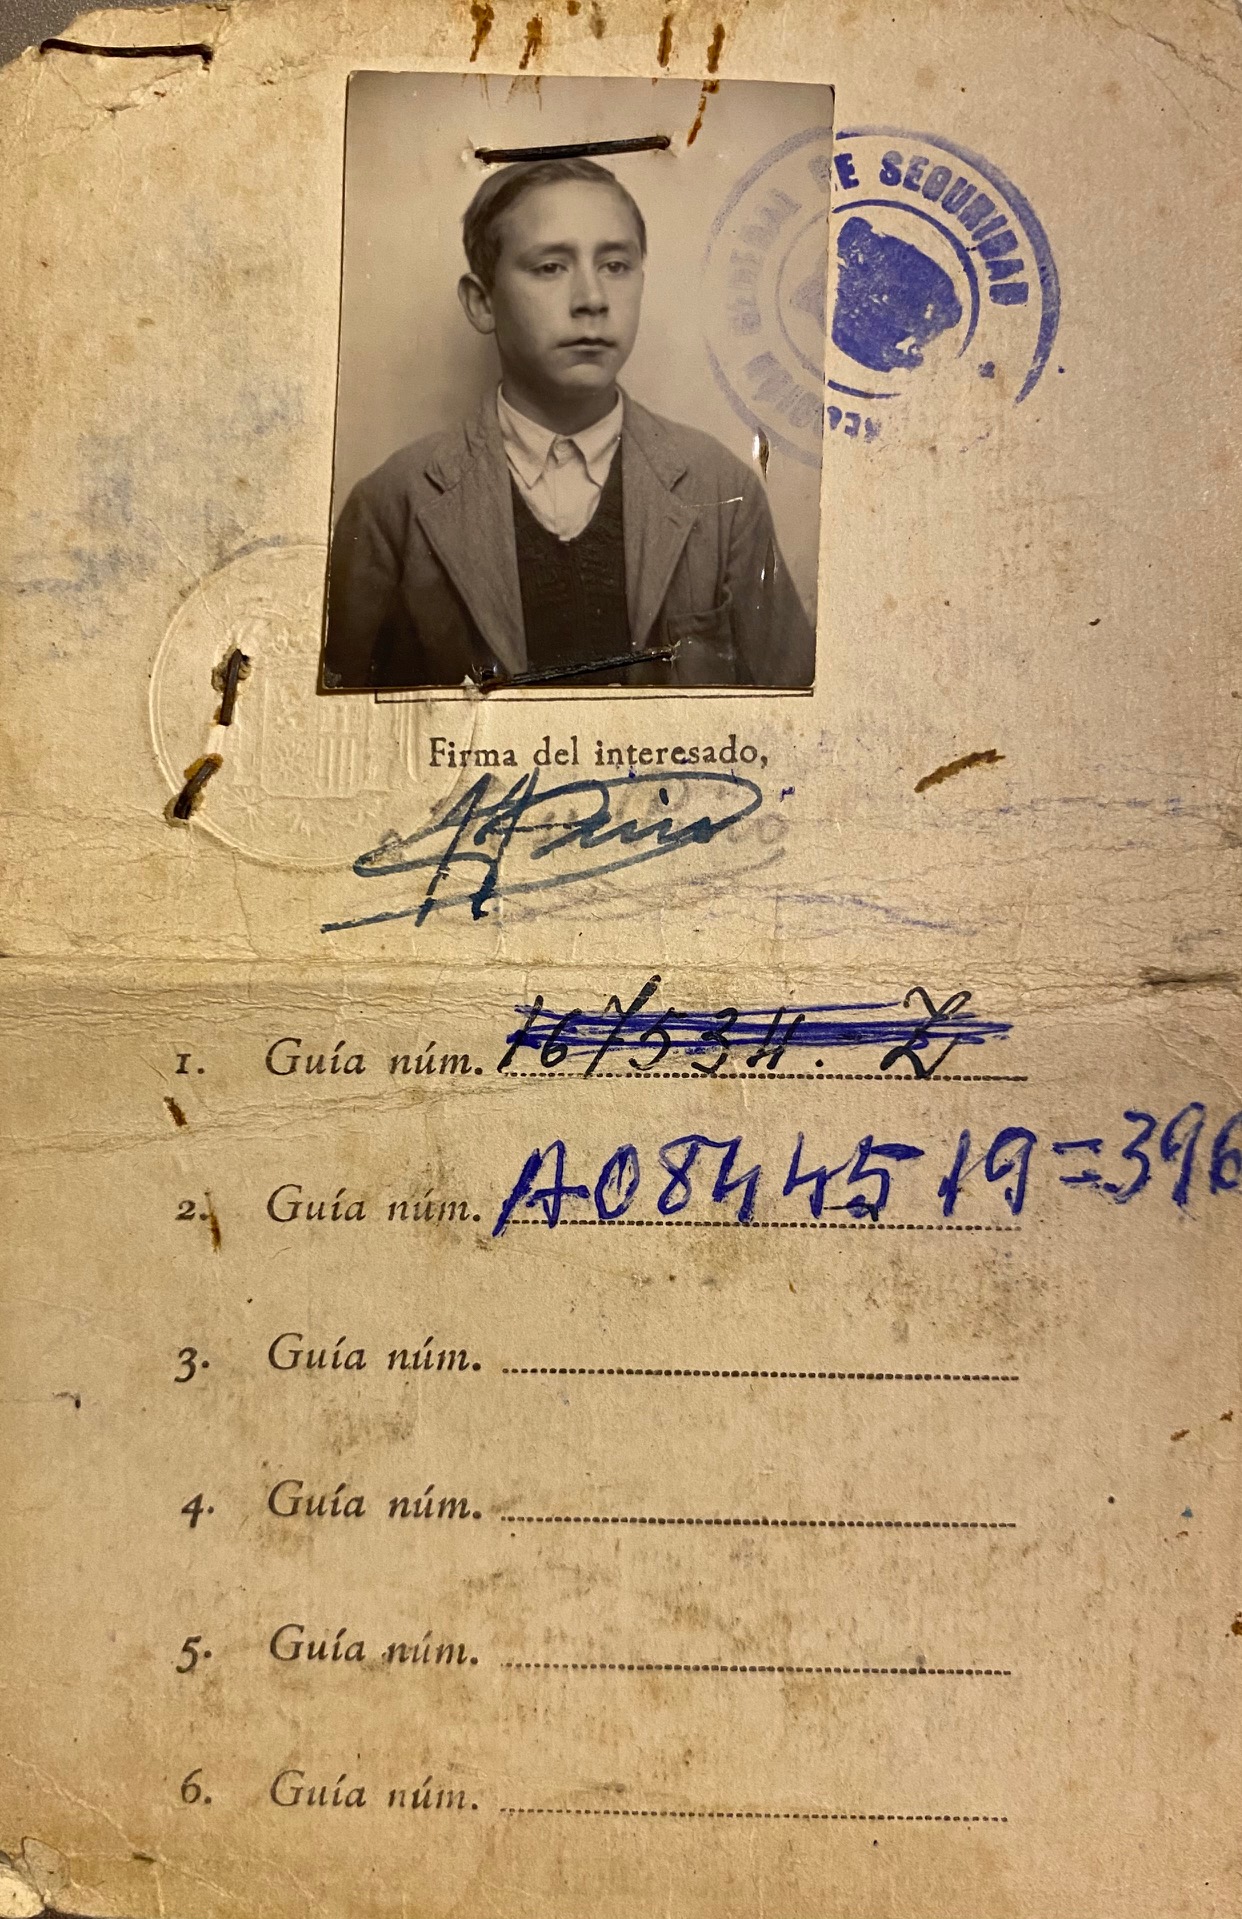 DIRECCIÓN GENERAL DE SEGURIDAD
Firma del interesado,
1. Guía núm. 167534. Z
2. Guía núm. A0844519=396
3. Guía núm.
4. Guía núm.
5. Guía núm.
6. Guía núm.